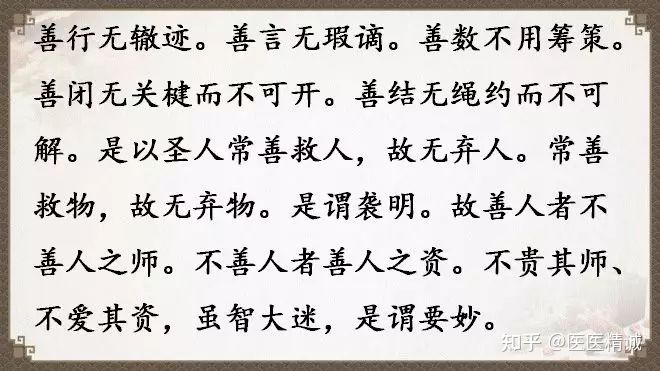 善行无辙迹。善言无瑕谪。善数不用筹策。
善闭无关楗而不可开。善结无绳约而不可
解。是以圣人常善救人，故无弃人。常善
救物，故无弃物。是谓袭明。故善人者不
善人之师。不善人者善人之资。不贵其师、
不爱其资，虽智大迷，是谓要妙。
知乎 @医医精诚